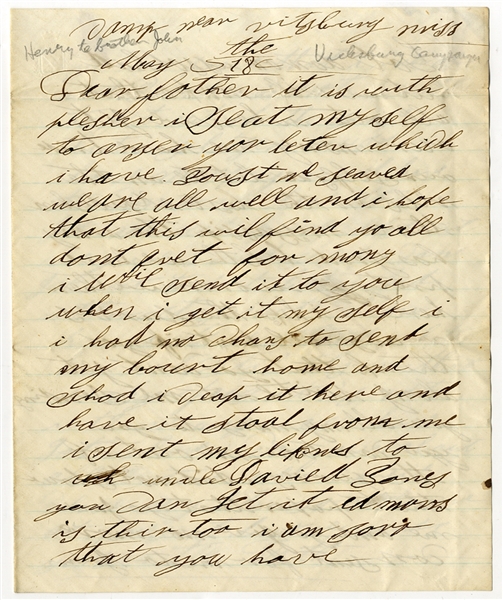 Camp near vitsburg miss
Henry to brother John
Vicksburg Campaign
May the 18
Dear flother it is with
plesher i Seat my self
to anser yor leter which
i have Joust re seaved
we are all well and i hope
that this wil find yo all
dont fret for mony
i wil send it to you
when i get it my self i
i had no chang to send
my bount home and
shod i ceap it here and
have it stoal from me
i sent my liknes to
uncle David Jones
you can get it edmons
is thir too i am sory
that you have